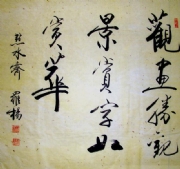 觀畫勝觀
景賞字如
賞華
点水齋
羅楊